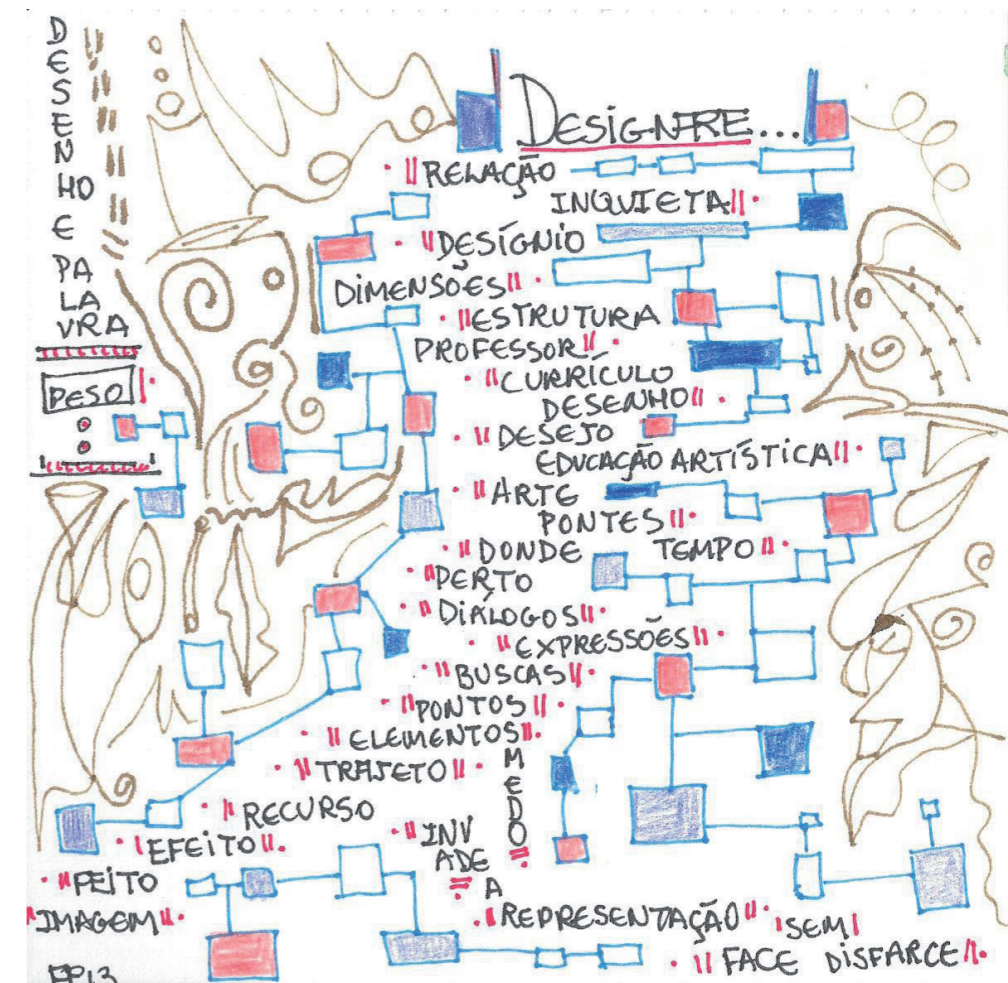 DESENHO E PALAVRA
PESO
DESIGNFRE...
RELAÇÃO
INQUIETA
DESÍGNIO
DIMENSÕES
ESTRUTURA
PROFESSOR
CURRÍCULO
DESENHO
DESEJO
EDUCAÇÃO ARTÍSTICA
ARTE
PONTES
DONDE TEMPO
PERTO
DIÁLOGOS
EXPRESSÕES
BUSCAS
PONTOS
ELEMENTOS
TRAJETO
MEDO
RECURSO
EFEITO
INV
ADE
A
PEITO
IMAGEM
REPRESENTAÇÃO
SEM
FACE DISFARCE